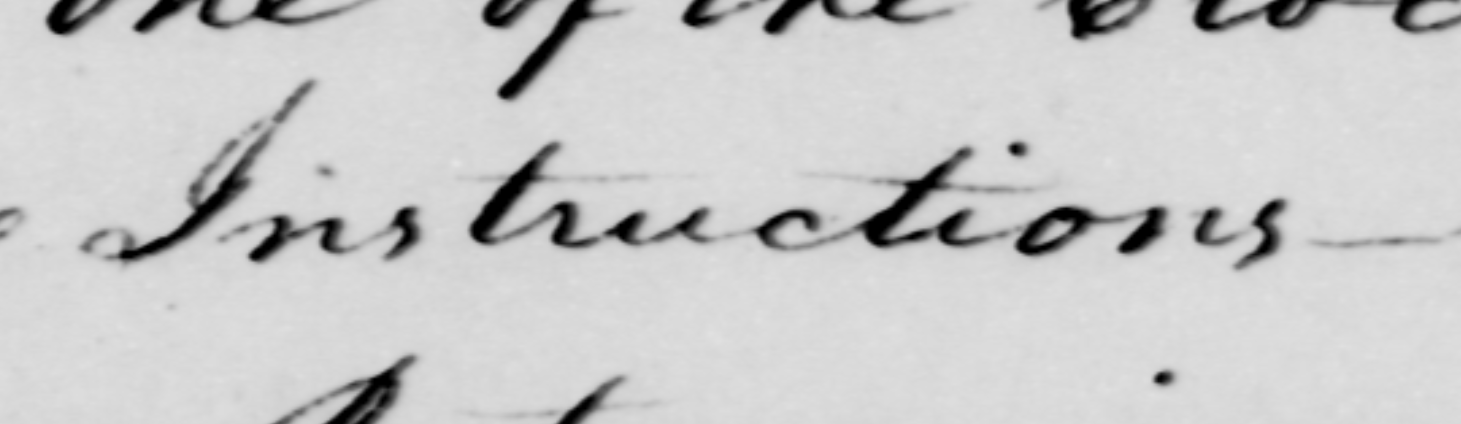 one of the
Instructions —